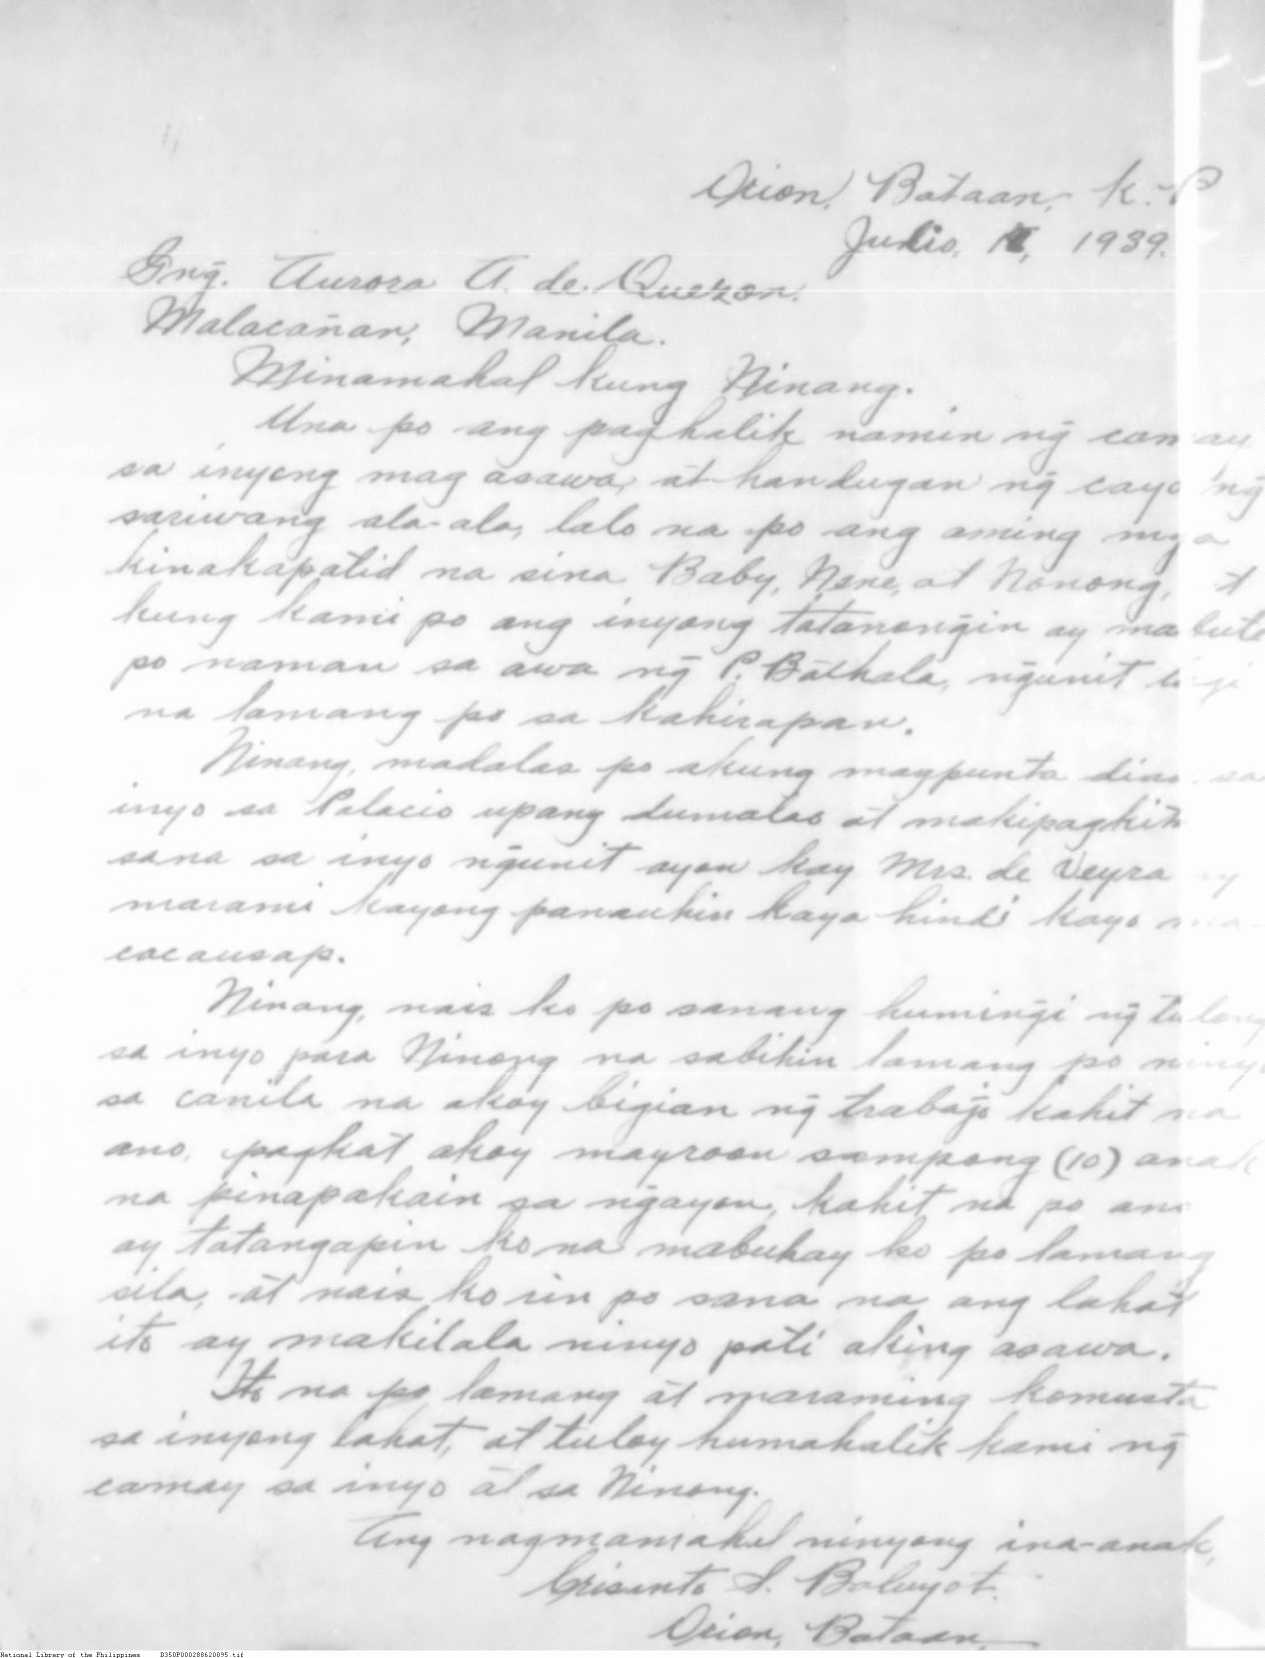 Orion, Bataan, K. P
Julio, 1939.
Gng. Aurora A. de Quezon.
Malacañan, Manila.
Minamahal kung Ninang.
Una po ang paghalik namin ng̃ camay
sa inyong mag asawa, at handugan ng̃ cayo ng̃
sariwang ala-ala, lalo na po ang aming mga
kinakapatid na sina Baby, Nene, at Nonong,
kung kami po ang inyong tatanong̃in ay mabute
po naman sa awa ng̃ P. Bathala, ng̃unit
na lamang po sa kahirapan.
Ninang, madalas po akung magpunta dian sa
inyo sa Palacio upang dumalao at makipagkita
sana sa inyo ng̃unit ayon kay Mrs. de Veyra ay
marami kayong panauhin kaya hindi kayo ma-
cacausap.
Ninang, nais ko po sanang huming̃i ng̃ tulong
sa inyo para Ninong na sabihin lamang po ninyo
sa canila na akoy bigian ng̃ trabajo kahit na
ano, pagkat akoy mayroon sampong (10) anak
na pinapakain sa ng̃ayon, kahit na po ano
ay tatangapin ko na mabuhay ko po lamang
sila, at nais ko rin po sana na ang lahat
ito ay makilala ninyo pati aking asawa.
Ito na po lamang at maraming komusta
sa inyong lahat, at tuloy humahalik kami ng̃
camay sa inyo at sa Ninong.
Ang nagmamahal ninyong ina-anak,
Crisanto S. Baluyot.
Orion, Bataan.
National Library of the Philippines D350P000288620895.tif